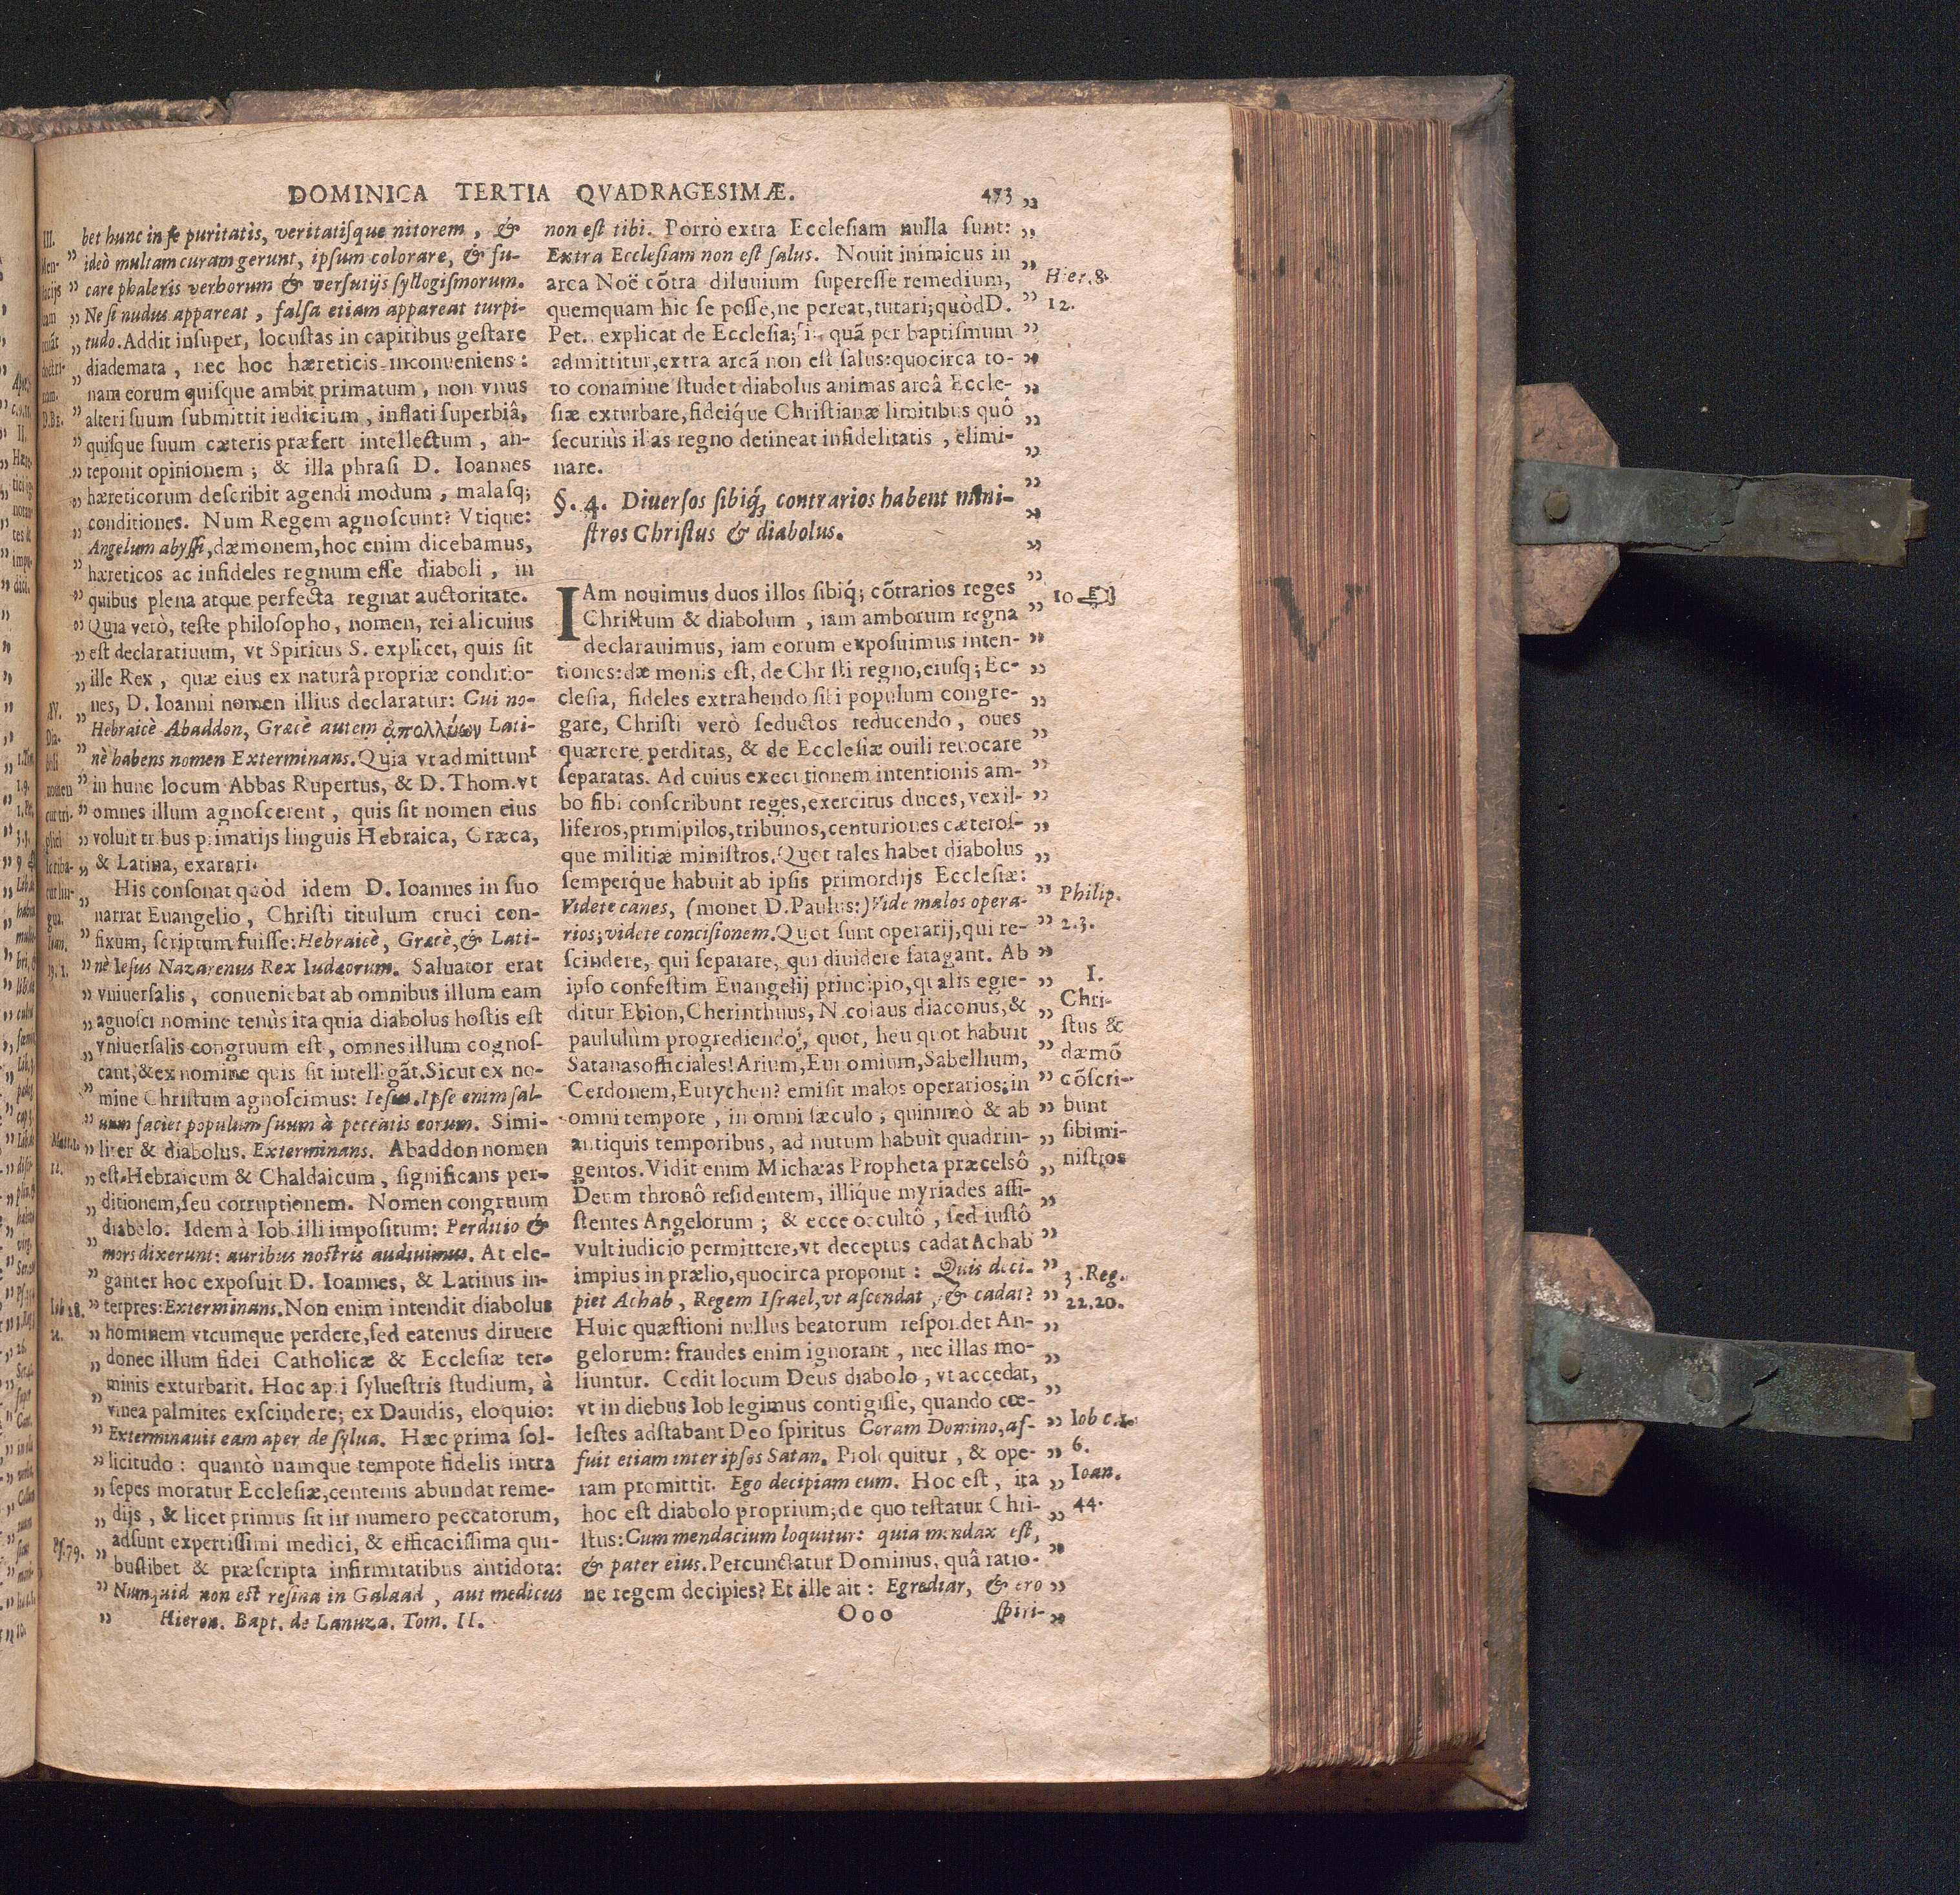 DOMINICA TERTIA QVADRAGESIMÆ. 473
bet hunc in se puritatis, veritatisque nitorem, &
ideò multam curam gerunt, ipsum colorare, & fu-
care phaleris verborum & versutijs syllogismorum.
Ne si nudus appareat, falsa etiam appareat turpi-
tudo. Addit insuper, locustas in capitibus gestare
diademata, nec hoc hæreticis inconueniens:
nam eorum quisque ambit primatum, non vnus
alteri suum submittit iudicium, inflati superbiâ,
quisque suum cæteris præfert intellectum, an-
teponit opinionem; & illa phrasi D. Ioannes
hæreticorum describit agendi modum, malasq;
conditiones. Num Regem agnoscunt? Vtique:
Angelum abyssi, dæmonem, hoc enim dicebamus,
hæreticos ac infideles regnum esse diaboli, in
quibus plena atque perfecta regnat auctoritate.
Quia verò, teste philosopho, nomen, rei alicuius
est declaratiuum, vt Spiritus S. explicet, quis sit
ille Rex, quæ eius ex naturâ propriæ conditio-
nes, D. Ioanni nomen illius declaratur: Cui no-
Hebraicè Abaddon, Græcè autem ἀπολλύων Lati-
nè habens nomen Exterminans. Quia vt admittunt
in hunc locum Abbas Rupertus, & D. Thom. vt
omnes illum agnoscerent, quis sit nomen eius
voluit tribus primatijs linguis Hebraica, Græca,
& Latina, exarari.
His consonat quòd idem D. Ioannes in suo
narrat Euangelio, Christi titulum cruci con-
fixum, scriptum fuisse: Hebraicè, Græcè, & Lati-
nè Iesus Nazarenus Rex Iudæorum. Saluator erat
vniuersalis, conueniebat ab omnibus illum eam
agnosci nomine tenùs ita quia diabolus hostis est
vniuersalis congruum est, omnes illum cognos-
cant, & ex nomine quis sit intelligãt. Sicut ex no-
mine Christum agnoscimus: Iesus. Ipse enim sal-
uum faciet populum suum à peccatis eorum. Simi-
liter & diabolus. Exterminans. Abaddon nomen
est Hebraicum & Chaldaicum, significans per-
ditionem, seu corruptionem. Nomen congruum
diabolo. Idem à Iob illi impositum: Perditio &
mors dixerunt: auribus nostris audiuimus. At ele-
ganter hoc exposuit D. Ioannes, & Latinus in-
terpres: Exterminans. Non enim intendit diabolus
hominem vtcumque perdere, sed eatenus diruere
donec illum fidei Catholicæ & Ecclesiæ ter-
minis exturbarit. Hoc apri syluestris studium, à
vinea palmites exscindere; ex Dauidis, eloquio:
Exterminauit eam aper de sylua. Hæc prima sol-
licitudo: quantò namque tempote fidelis intra
sepes moratur Ecclesiæ, centenis abundat reme-
dijs, & licet primus sit in numero peccatorum,
adsunt expertissimi medici, & efficacissima qui-
buslibet & præscripta infirmitatibus antidota:
Numquid non est resina in Galaad, aut medicus
Hieron. Bapt. de Lanuza. Tom. II.
III.
D. Br.
IV.
Dia-
boli
nomen
cur tri-
plici
scriba-
tur lin-
gua.
Ioan.
19. 1.
Matt. 1.
Iob 28.
Ps. 79.
non est tibi. Porrò extra Ecclesiam nulla sunt:
Extra Ecclesiam non est salus. Nouit inimicus in
arca Noë cõtra diluuium superesse remedium,
quemquam hic se posse, ne pereat, tutari; quòd D.
Pet. explicat de Ecclesia; in quã per baptismum
admittitur, extra arcã non est salus: quocirca to-
to conamine studet diabolus animas arcâ Eccle-
siæ exturbare, fideiq́ue Christianæ limitibus quô
securiùs illas regno detineat infidelitatis, elimi-
nare.
§. 4. Diuersos sibiq́ue contrarios habent mini-
stros Christus & diabolus.
IAm nouimus duos illos sibiq́; cõtrarios reges
Christum & diabolum, iam amborum regna
declarauimus, iam eorum exposuimus inten-
tiones: dæmonis est, de Christi regno, eiusq; Ec-
clesia, fideles extrahendo sibi populum congre-
gare, Christi verò seductos reducendo, oues
quærere perditas, & de Ecclesiæ ouili reuocare
separatas. Ad cuius executionem intentionis am-
bo sibi conscribunt reges, exercitus duces, vexil-
liferos, primipilos, tribunos, centuriones cæteros-
que militiæ ministros. Quot tales habet diabolus
semperq́ue habuit ab ipsis primordijs Ecclesiæ:
Videte canes, (monet D. Paulus:) Vide malos opera-
rios; videte concisionem. Quot sunt operarij, qui re-
scindere, qui separare, qui diuidere satagant. Ab
ipso confestim Euangelij principio, qualis egre-
ditur Ebion, Cherinthuus, Nicolaus diaconus, &
paululùm progrediendo, quot, heu quot habuit
Satanas officiales! Arium, Eunomium, Sabellium,
Cerdonem, Eutychen? emisit malos operarios; in
omni tempore, in omni sæculo, quinimò & ab
antiquis temporibus, ad nutum habuit quadrin-
gentos. Vidit enim Michæas Propheta præcelsô
Deum thronô residentem, illiq́ue myriades assi-
stentes Angelorum; & ecce occultô, sed iustô
vult iudicio permittere, vt deceptus cadat Achab
impius in prælio, quocirca proponit: Quis deci-
piet Achab, Regem Israel, vt ascendat, & cadat?
Huic quæstioni nullus beatorum respondet An-
gelorum: fraudes enim ignorant, nec illas mo-
liuntur. Cedit locum Deus diabolo, vt accedat,
vt in diebus Iob legimus contigisse, quando cœ-
lestes adstabant Deo spiritus Coram Domino, af-
fuit etiam inter ipsos Satan. Proloquitur, & ope-
ram promittit. Ego decipiam eum. Hoc est, ita
hoc est diabolo proprium; de quo testatur Chri-
stus: Cum mendacium loquitur: quia mendax est,
& pater eius. Percunctatur Dominus, quâ ratio-
ne regem decipies? Et ille ait: Egrediar, & ero
Ooo spiri-
Hier. 8.
12.
10
Philip.
2.3.
I.
Chri-
stus &
dæmõ
cõscri-
bunt
sibi mi-
nistros
3. Reg.
22.20.
Iob c.1.
6.
Ioan.
44.
V